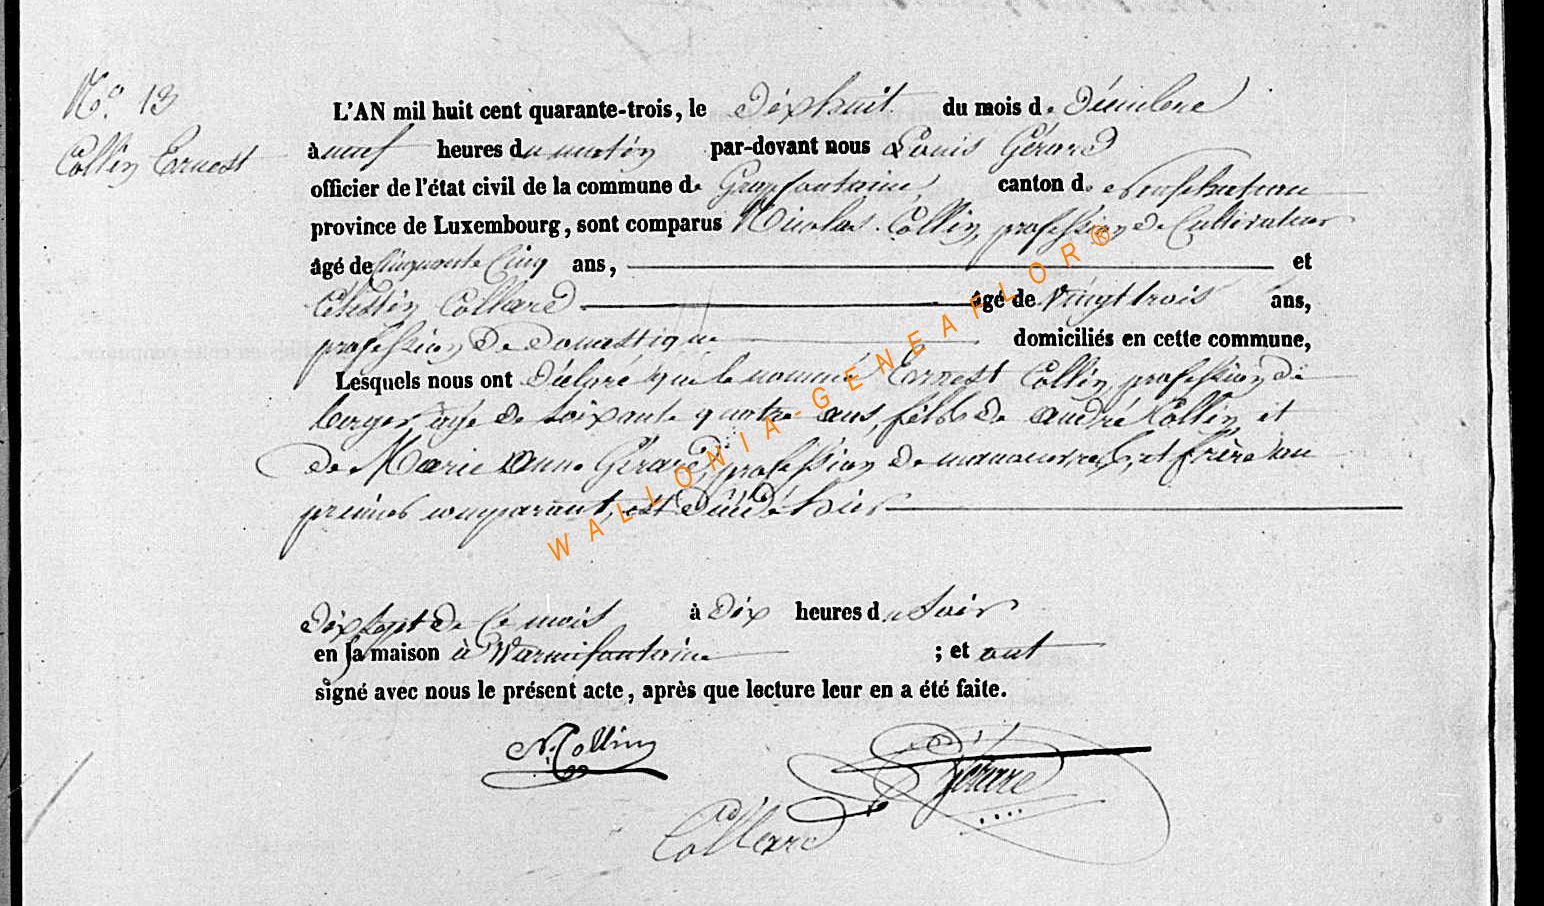 N.° 13
Collin Ernest
L'AN mil huit cent quarante-trois, le dixhuit du mois de Décembre
à neuf heures du matin par-devant nous Louis Gérard
officier de l'état civil de la commune de Grapfontaine canton de Neufchateau
province de Luxembourg, sont comparus Nicolas Collin, profession de Cultivateur
âgé de Cinquante Cinq ans, et
Célestin Collard âgé de vingt trois ans,
profession de domestique domiciliés en cette commune,
Lesquels nous ont déclaré que le nommé Ernest Collin, profession de
berger agé de soixante quatre ans, fils de André Collin et
de Marie Anne Gérard, profession de manoeuvres, et frère au
premier comparant, est décédé hier
dix sept de ce mois à dix heures du soir
en sa maison à Warmifontaine ; et ont
signé avec nous le présent acte, après que lecture leur en a été faite.
N. Collin
Gérard
Collard
WALLONIA-GENEAFLOR®